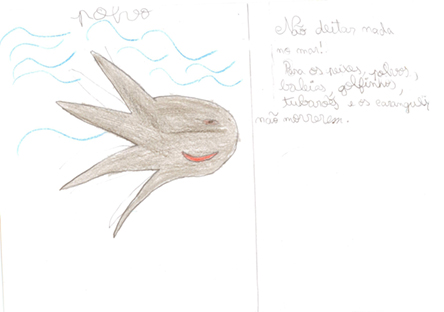 polvo
Não deitar nada
no mar!
Para os peixes, polvos,
baleias, golfinhos,
tubarões e os caranguejos
não morrerem.